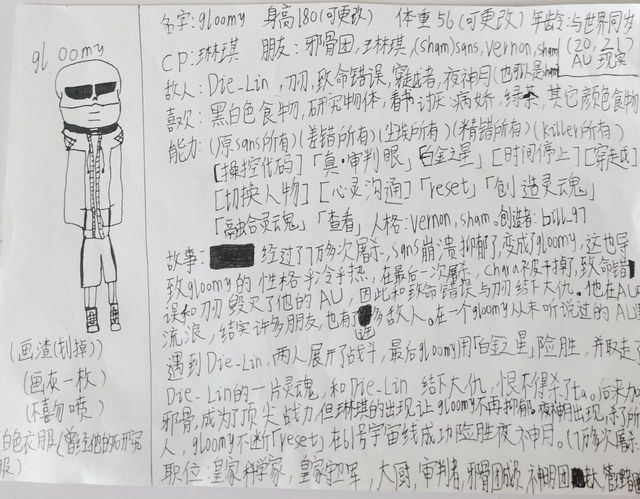 gloomy
(画渣(划掉))
(画灰一枚)
(不喜勿喷)
白色衣服(曾经他的研究服)
名字:gloomy 身高180(可更改) 体重56(可更改) 年龄:与世界同岁
(20,21)
AU 现实
CP:琳琪 朋友:邪骨团,琳琪,(sham)sans,vernon,sham
敌人:Die-Lin,刀刃,致命错误,穿越者,夜神月
喜欢:黑白色食物,研究物体,看书 讨厌:病娇,绿茶,其它颜色食物
能力:(原sans所有)(差错所有)(尘埃所有)(精错所有)(killer所有)
[操控代码]「真·审判眼」白金之星」[时间停止][穿越
[切换人物][心灵沟通]「reset」「创造灵魂」
「融合灵魂」「查看」人格:vernon,sham.创造者:bill_97
故事: 经过了7万多次屠杀,sans崩溃抑郁了,变成了gloomy,这也导
致gloomy的性格手冷手热,在最后一次屠杀,chara被干掉了,致命错
误和刀刃毁灭了他的AU,因此和致命错误与刀刃结下大仇。他在AU
流浪,结实许多朋友,也有许多敌人。在一个gloomy从未听说过的AU里
遇到Die-Lin,两人展开了战斗,最后gloomy用白金之星险胜,并取走了
Die-Lin的一片灵魂,和Die-Lin结下大仇,恨不得杀了ta。后来加
邪骨,成为了顶尖战力但琳琪的出现让gloomy不再抑郁,夜神月出现,杀了所
人,gloomy不断「reset」在61号宇宙线成功险胜夜神月。(7万多次屠杀
职位:皇家科学家,皇家守卫,大厨,审判者,邪骨团成员,神明团